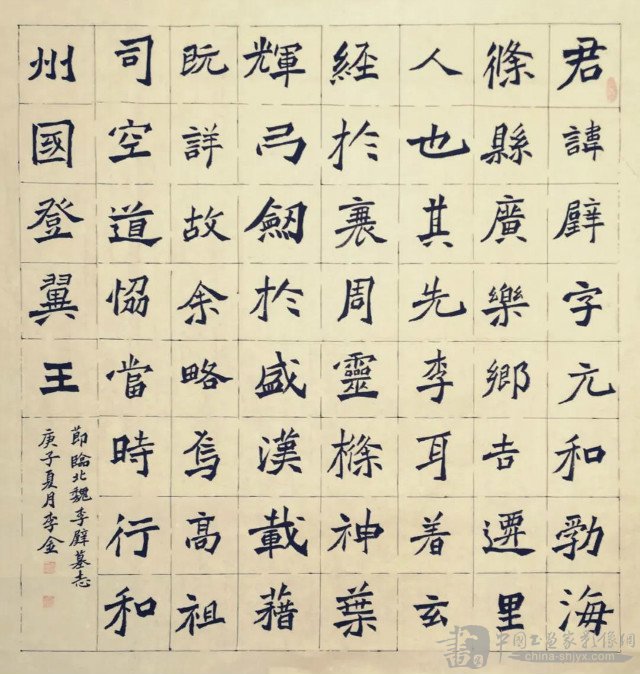 君諱璧字元和勃海
條縣廣樂鄉吉遷里
人也其先李耳著玄
經於衰周靈條神葉
輝弓劒於盛漢載藉
既詳故余略焉高祖
司空道協當時行和
州國登翼王
節臨北魏李璧墓志
庚子夏月李金
中國書画家影像網
china-shjyx.com